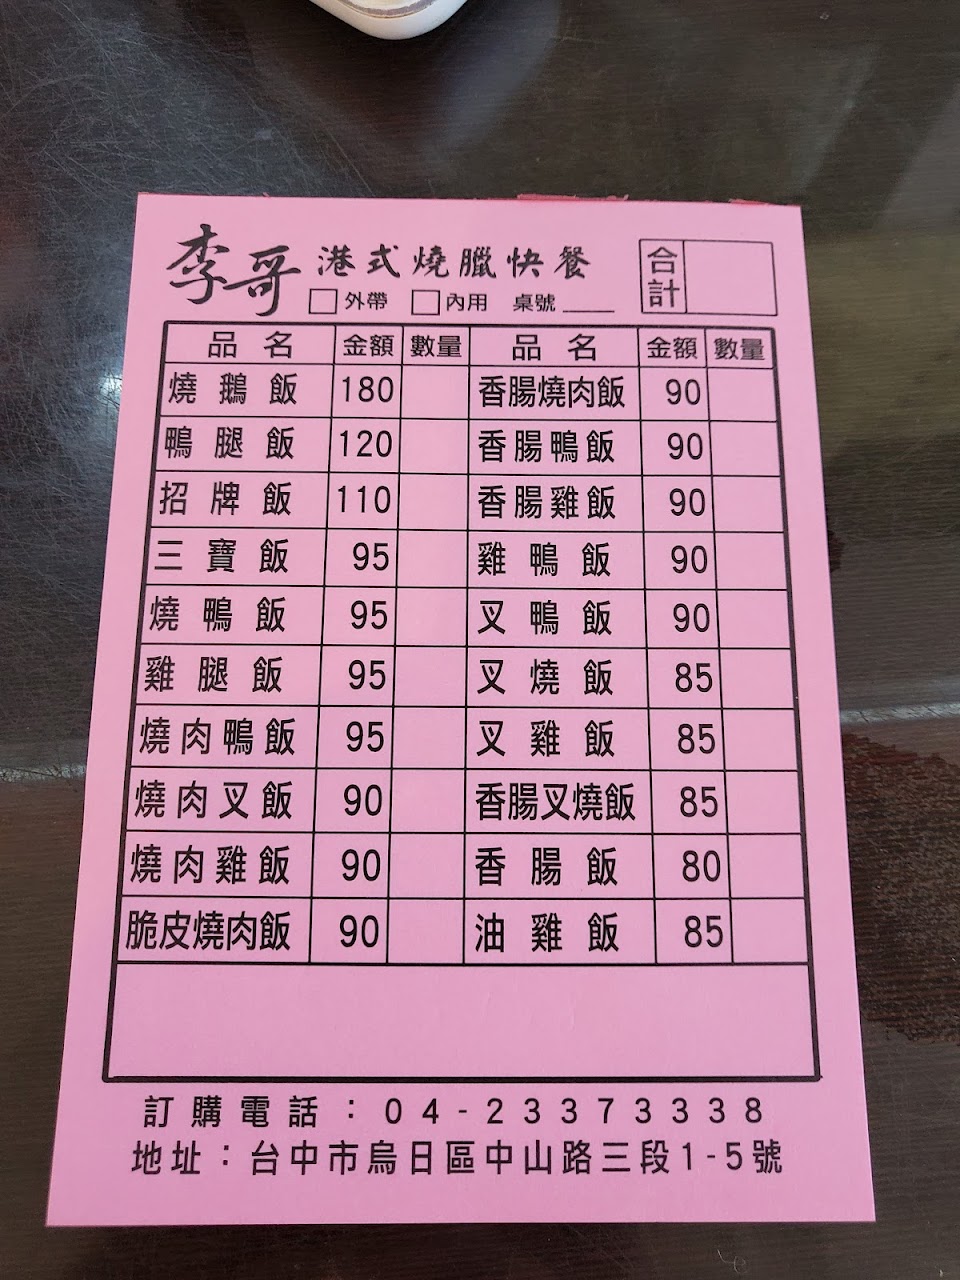 李哥 港式燒臘快餐 合計
□外帶 □內用 桌號____
品名 金額 數量 品名 金額 數量
燒鵝飯 180 香腸燒肉飯 90
鴨腿飯 120 香腸鴨飯 90
招牌飯 110 香腸雞飯 90
三寶飯 95 雞鴨飯 90
燒鴨飯 95 叉鴨飯 90
雞腿飯 95 叉燒飯 85
燒肉鴨飯 95 叉雞飯 85
燒肉叉飯 90 香腸叉燒飯 85
燒肉雞飯 90 香腸飯 80
脆皮燒肉飯 90 油雞飯 85
訂購電話：04-23373338
地址：台中市烏日區中山路三段1-5號